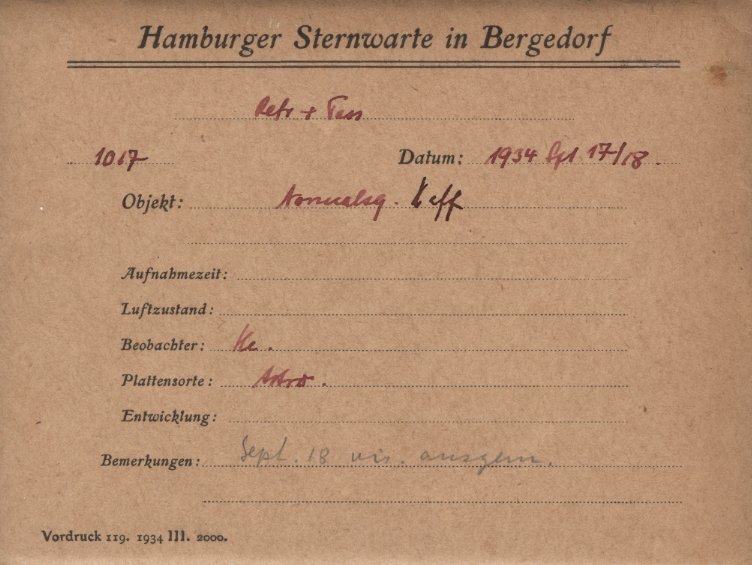 Hamburger Sternwarte in Bergedorf
Refr + Tess
1017 Datum: 1934 Spt 17/18.
Objekt: Normalsq.
Aufnahmezeit:
Luftzustand:
Beobachter: Ke.
Plattensorte: Astro.
Entwicklung:
Bemerkungen: Sept. 18 vis. ausgem.
Vordruck 119. 1934 III. 2000.